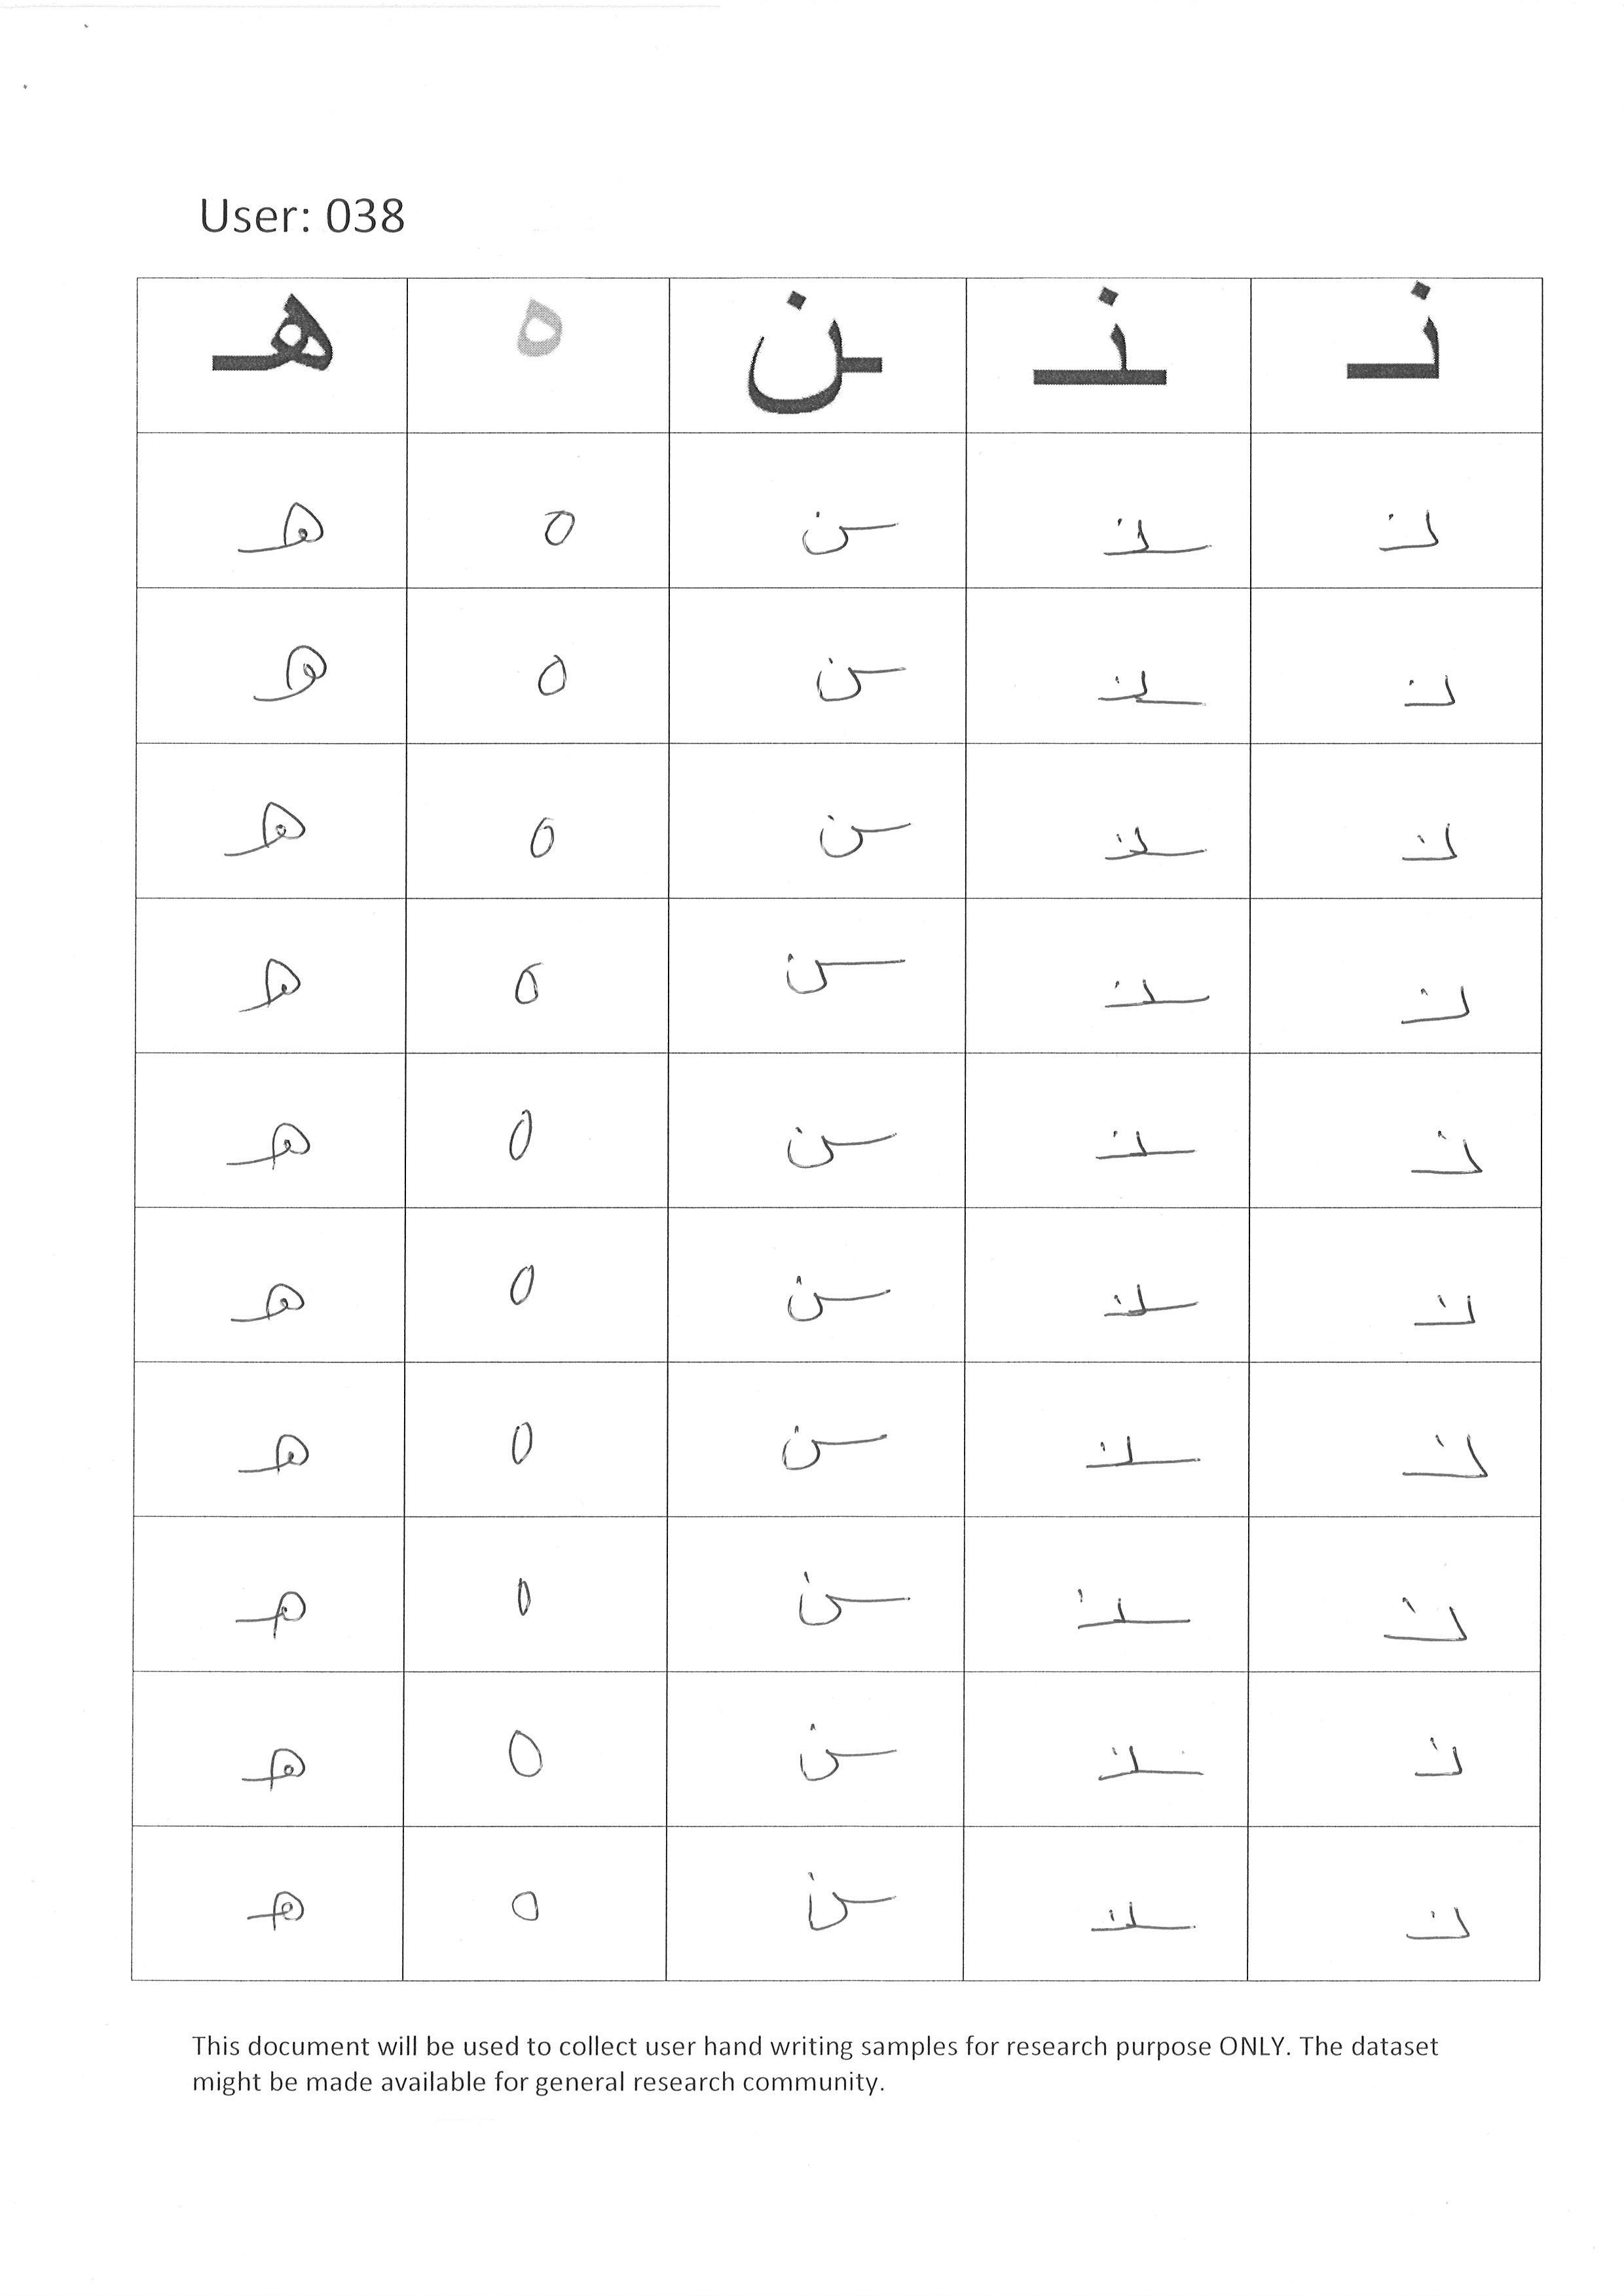 User: 038
نـ ـنـ ـن ه هـ
نـ ـنـ ـن ه هـ
نـ ـنـ ـن ه هـ
نـ ـنـ ـن ه هـ
نـ ـنـ ـن ه هـ
نـ ـنـ ـن ه هـ
نـ ـنـ ـن ه هـ
نـ ـنـ ـن ه هـ
نـ ـنـ ـن ه هـ
نـ ـنـ ـن ه هـ
نـ ـنـ ـن ه هـ
This document will be used to collect user hand writing samples for research purpose ONLY. The dataset
might be made available for general research community.